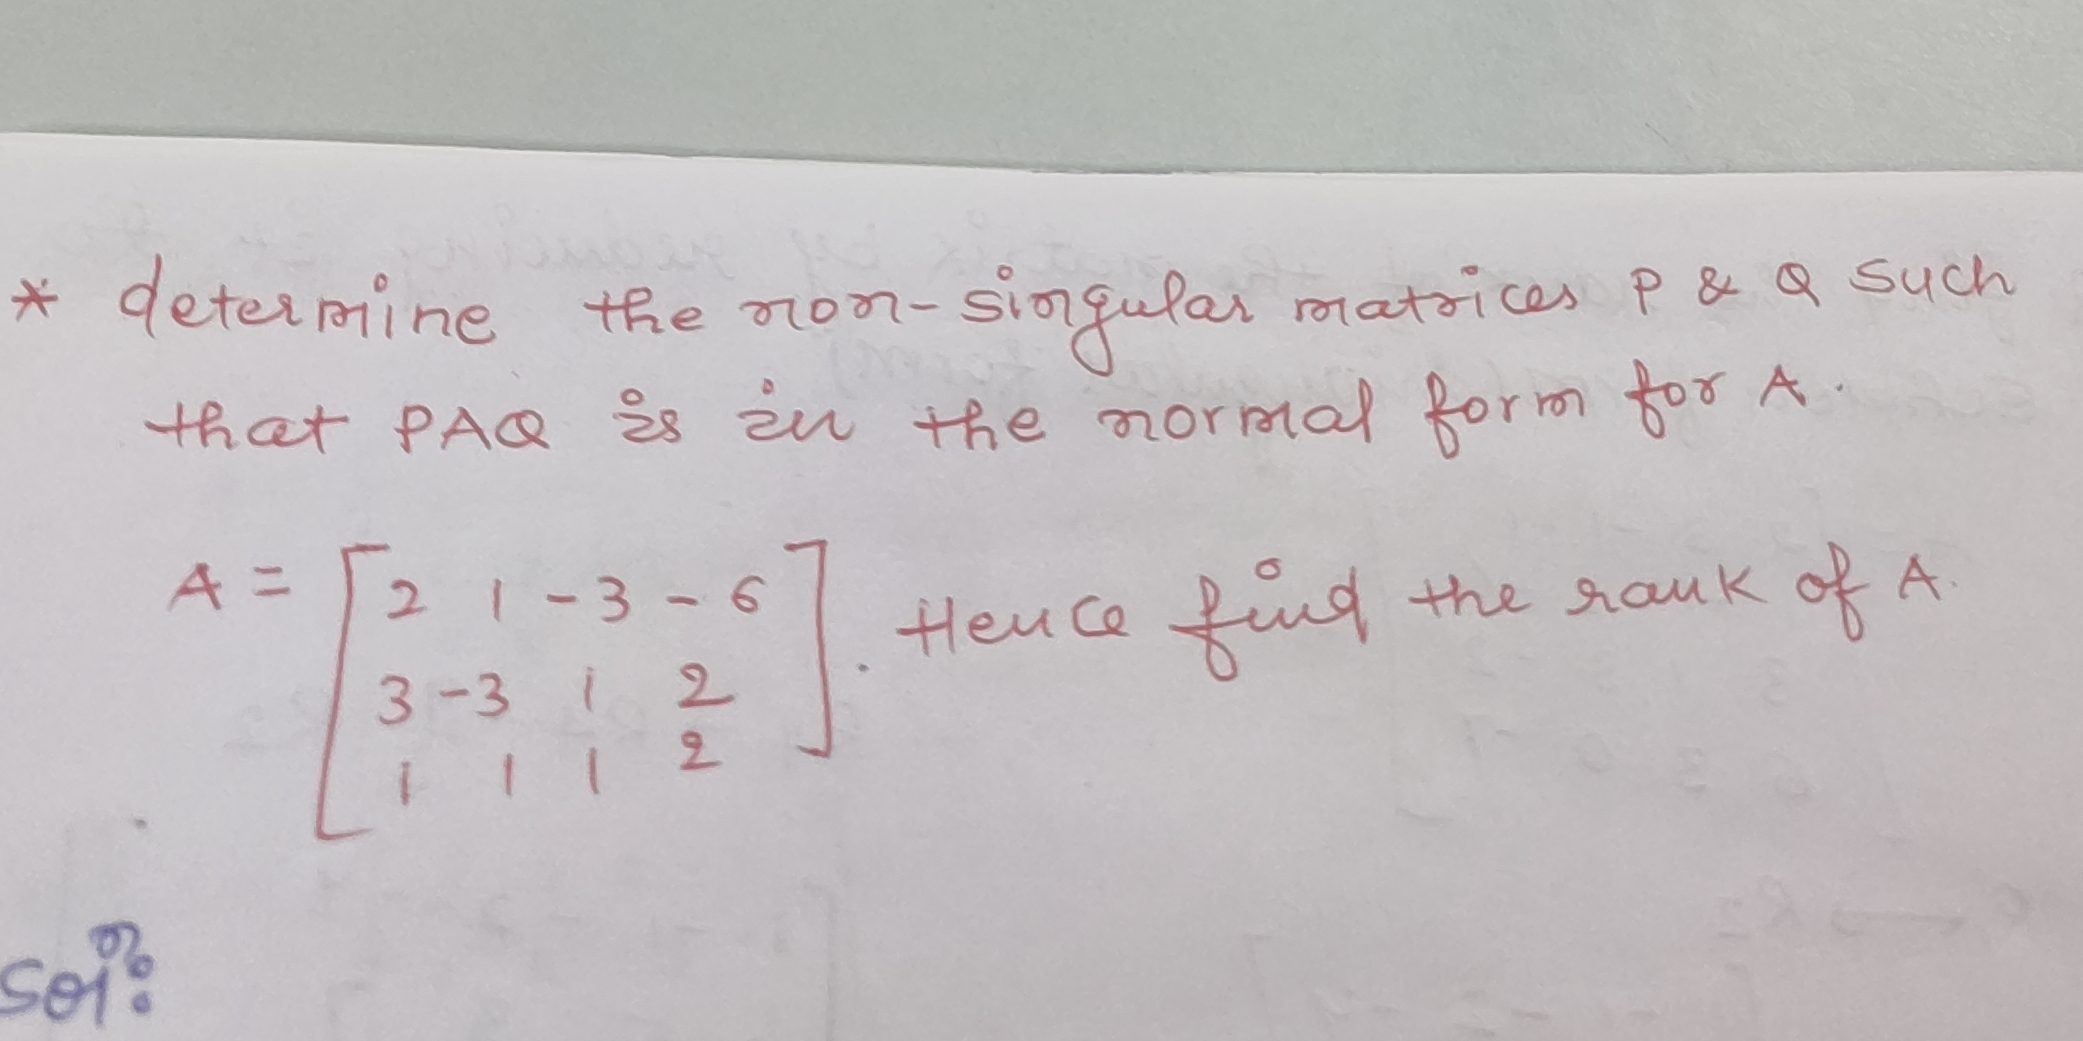 * determine the non-singular matrices P & Q such
that PAQ is in the normal form for A.
A = [2 1 -3 -6
3 -3 1 2
1 1 1 2]. Hence find the rank of A.
Soln: